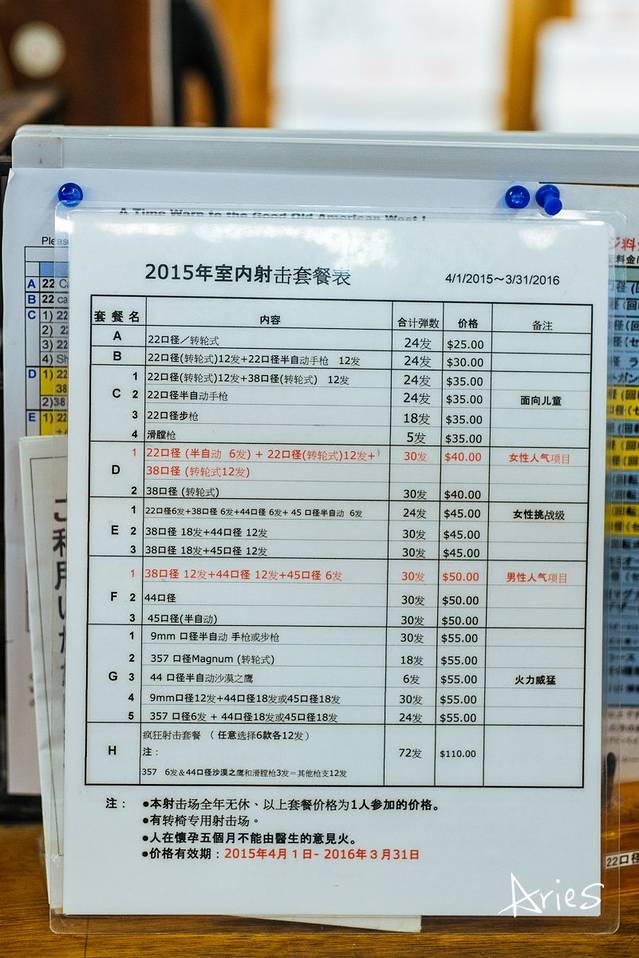 A Time Warp to the Good Old American West !
2015年室内射击套餐表
4/1/2015～3/31/2016
套 餐 名 内容 合计弹数 价格 备注
A 22口径／转轮式 24发 $25.00
B 22口径(转轮式)12发+22口径半自动手枪 12发 24发 $30.00
C 1 22口径(转轮式)12发+38口径(转轮式) 12发 24发 $35.00
2 22口径半自动手枪 24发 $35.00 面向儿童
3 22口径步枪 18发 $35.00
4 滑膛枪 5发 $35.00
D 1 22口径 (半自动 6发) + 22口径(转轮式)12发+
38口径 (转轮式12发) 30发 $40.00 女性人气项目
2 38口径 (转轮式) 30发 $40.00
E 1 22口径6发+38口径 6发+44口径 6发+ 45 口径半自动 6发 24发 $45.00 女性挑战级
2 38口径 18发+44口径 12发 30发 $45.00
3 38口径 18发+45口径 12发 30发 $45.00
F 1 38口径 12发+44口径 12发+45口径 6发 30发 $50.00 男性人气项目
2 44口径 30发 $50.00
3 45口径(半自动) 30发 $50.00
G 1 9mm 口径半自动 手枪或步枪 30发 $55.00
2 357 口径Magnum (转轮式) 18发 $55.00
3 44 口径半自动沙漠之鹰 6发 $55.00 火力威猛
4 9mm口径12发+44口径18发或45口径18发 30发 $55.00
5 357 口径6发 + 44口径18发或45口径18发 24发 $55.00
H 疯狂射击套餐 （ 任意选择6款各12发）
注： 72发 $110.00
357 6发＆44口径沙漠之鹰和滑膛枪3发＝其他枪支12发
注： ●本射击场全年无休、以上套餐价格为1人参加的价格。
●有转椅专用射击场。
●人在懷孕五個月不能由醫生的意見火。
●价格有效期：2015年4月１日- 2016年３月31日
Aries